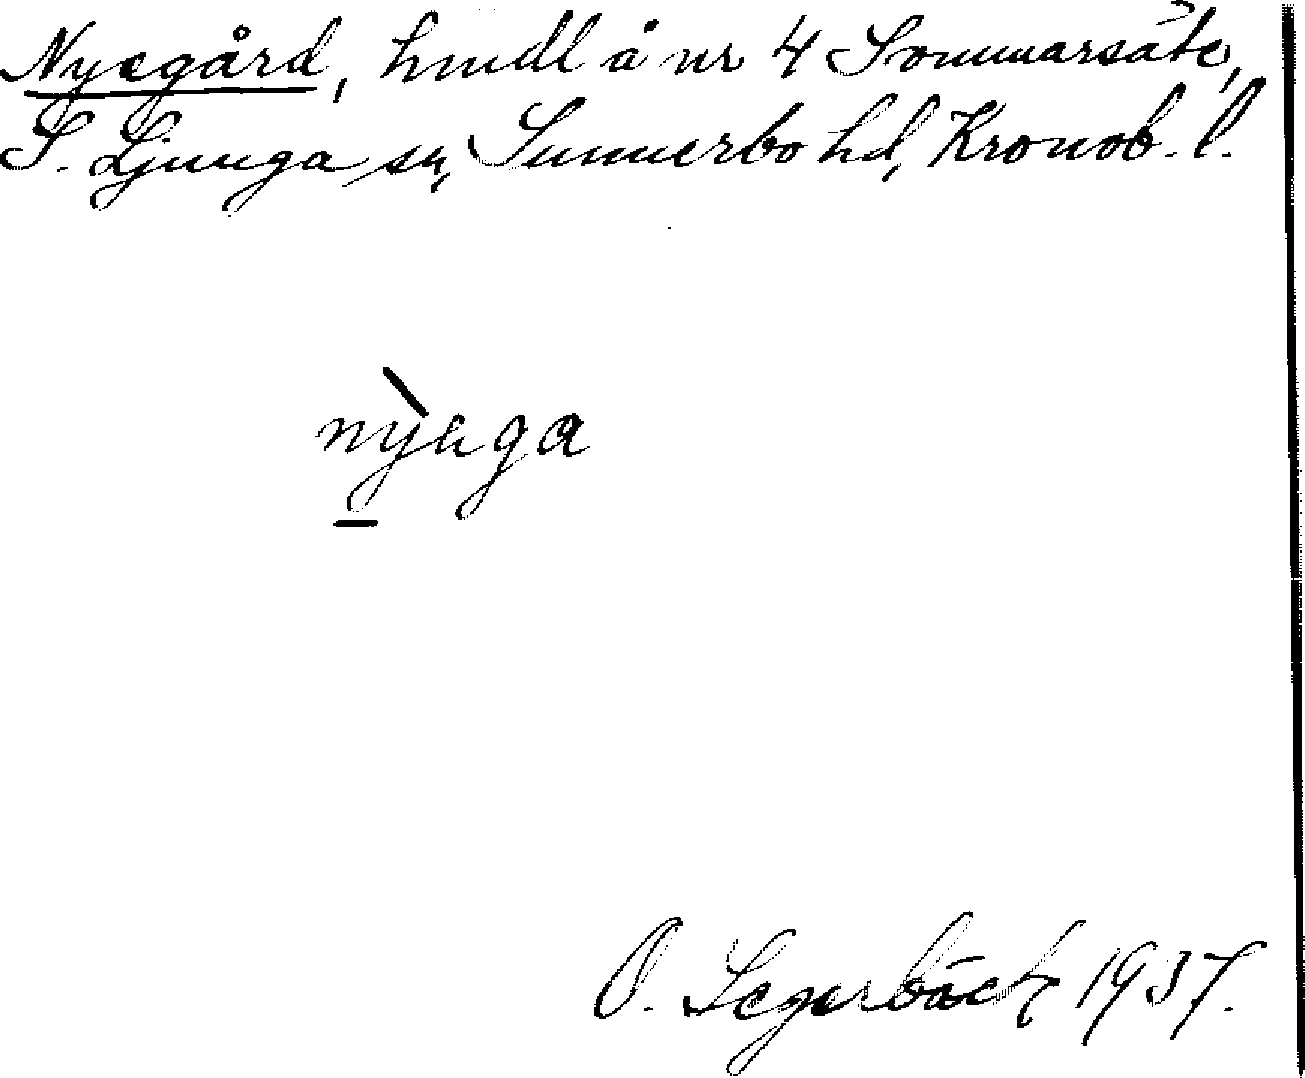 Nyegård, hmdl å nr 4 Sommarsäte,
S. Ljunga sn, Sunnerbo hd, Kronob. l.
nỳəga
O. Segerbäck 1937.